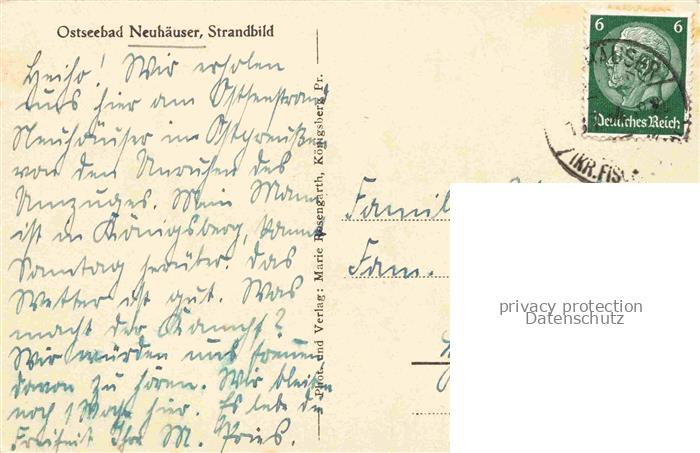 Ostseebad Neuhäuser, Strandbild
Heiho! Wir erholen
uns hier am Ostseestrand
Neuhäuser in Ostpreußen
von den Unruhen des
Umzuges. Mein Mann
ist in Königsberg, kommt
Sonntag herüber. Das
Wetter ist gut. Was
macht der Kampf?
Wir würden uns freuen
davon zu hören. Wir bleiben
noch 1 Woche hier. Es lebe die
Freiheit Ihr M. Pries.
Phot. und Verlag: Marie Rosengarth, Königsberg Pr.
6 6
Deutsches Reich
HÄUSER
(KR.FISC
Famil
Fam.
privacy protection
Datenschutz